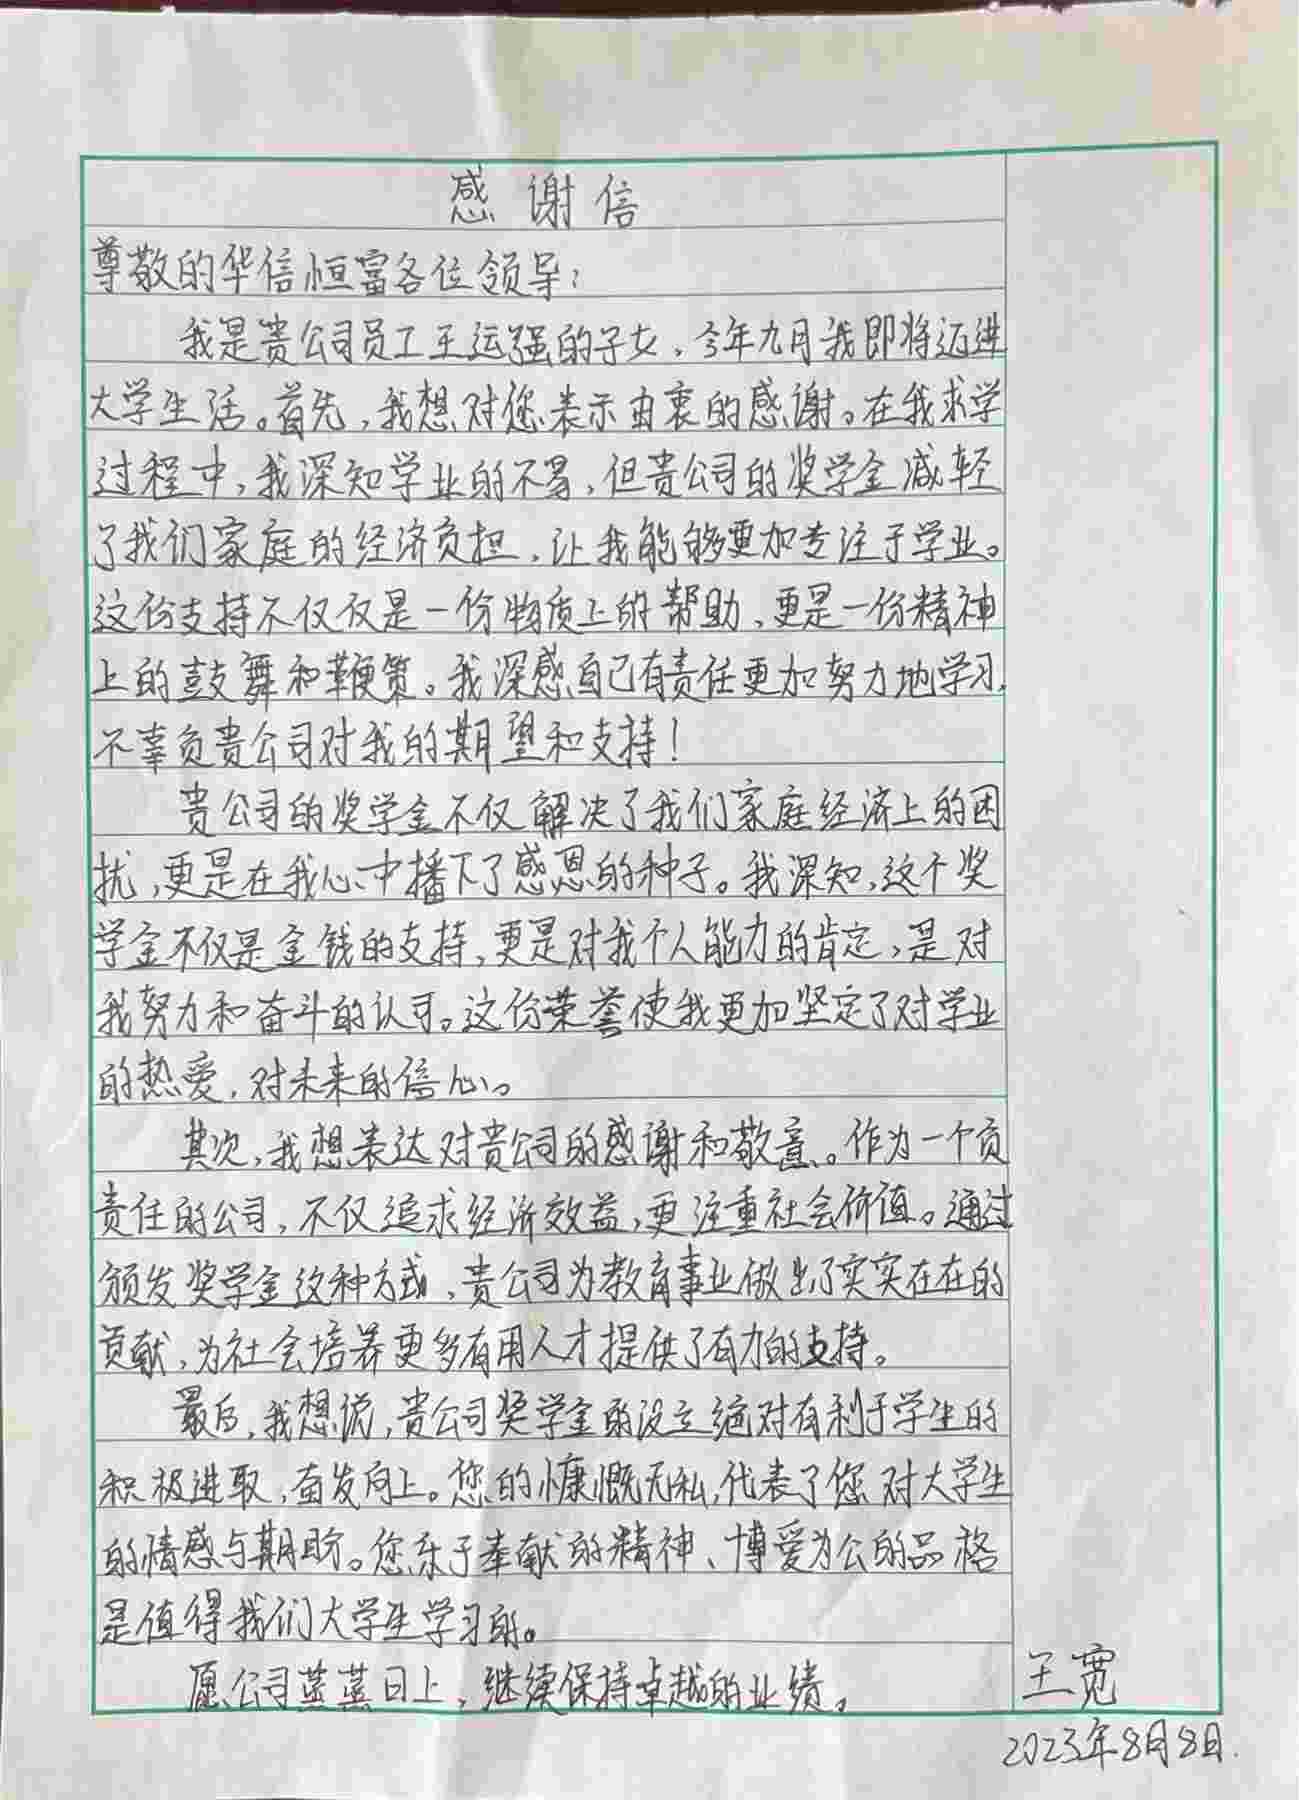 感谢信
尊敬的华信恒富各位领导：
我是贵公司员工王运强的子女，今年九月我即将迈进
大学生活。首先，我想对您表示由衷的感谢。在我求学
过程中，我深知学业的不易，但贵公司的奖学金减轻
了我们家庭的经济负担，让我能够更加专注于学业。
这份支持不仅仅是一份物质上的帮助，更是一份精神
上的鼓舞和鞭策。我深感自己有责任更加努力地学习，
不辜负贵公司对我的期望和支持！
贵公司的奖学金不仅解决了我们家庭经济上的困
扰，更是在我心中播下了感恩的种子。我深知，这个奖
学金不仅是金钱的支持，更是对我个人能力的肯定，是对
我努力和奋斗的认可。这份荣誉使我更加坚定了对学业
的热爱，对未来的信心。
其次，我想表达对贵公司的感谢和敬意。作为一个负
责任的公司，不仅追求经济效益，更注重社会价值。通过
颁发奖学金这种方式，贵公司为教育事业做出了实实在在的
贡献，为社会培养更多有用人才提供了有力的支持。
最后，我想说，贵公司奖学金的设立绝对有利于学生的
积极进取，奋发向上。您的慷慨无私，代表了您对大学生
的情感与期盼。您乐于奉献的精神、博爱为公的品格
是值得我们大学生学习的。
愿公司蒸蒸日上，继续保持卓越的业绩。
王宽
2023年8月8日.